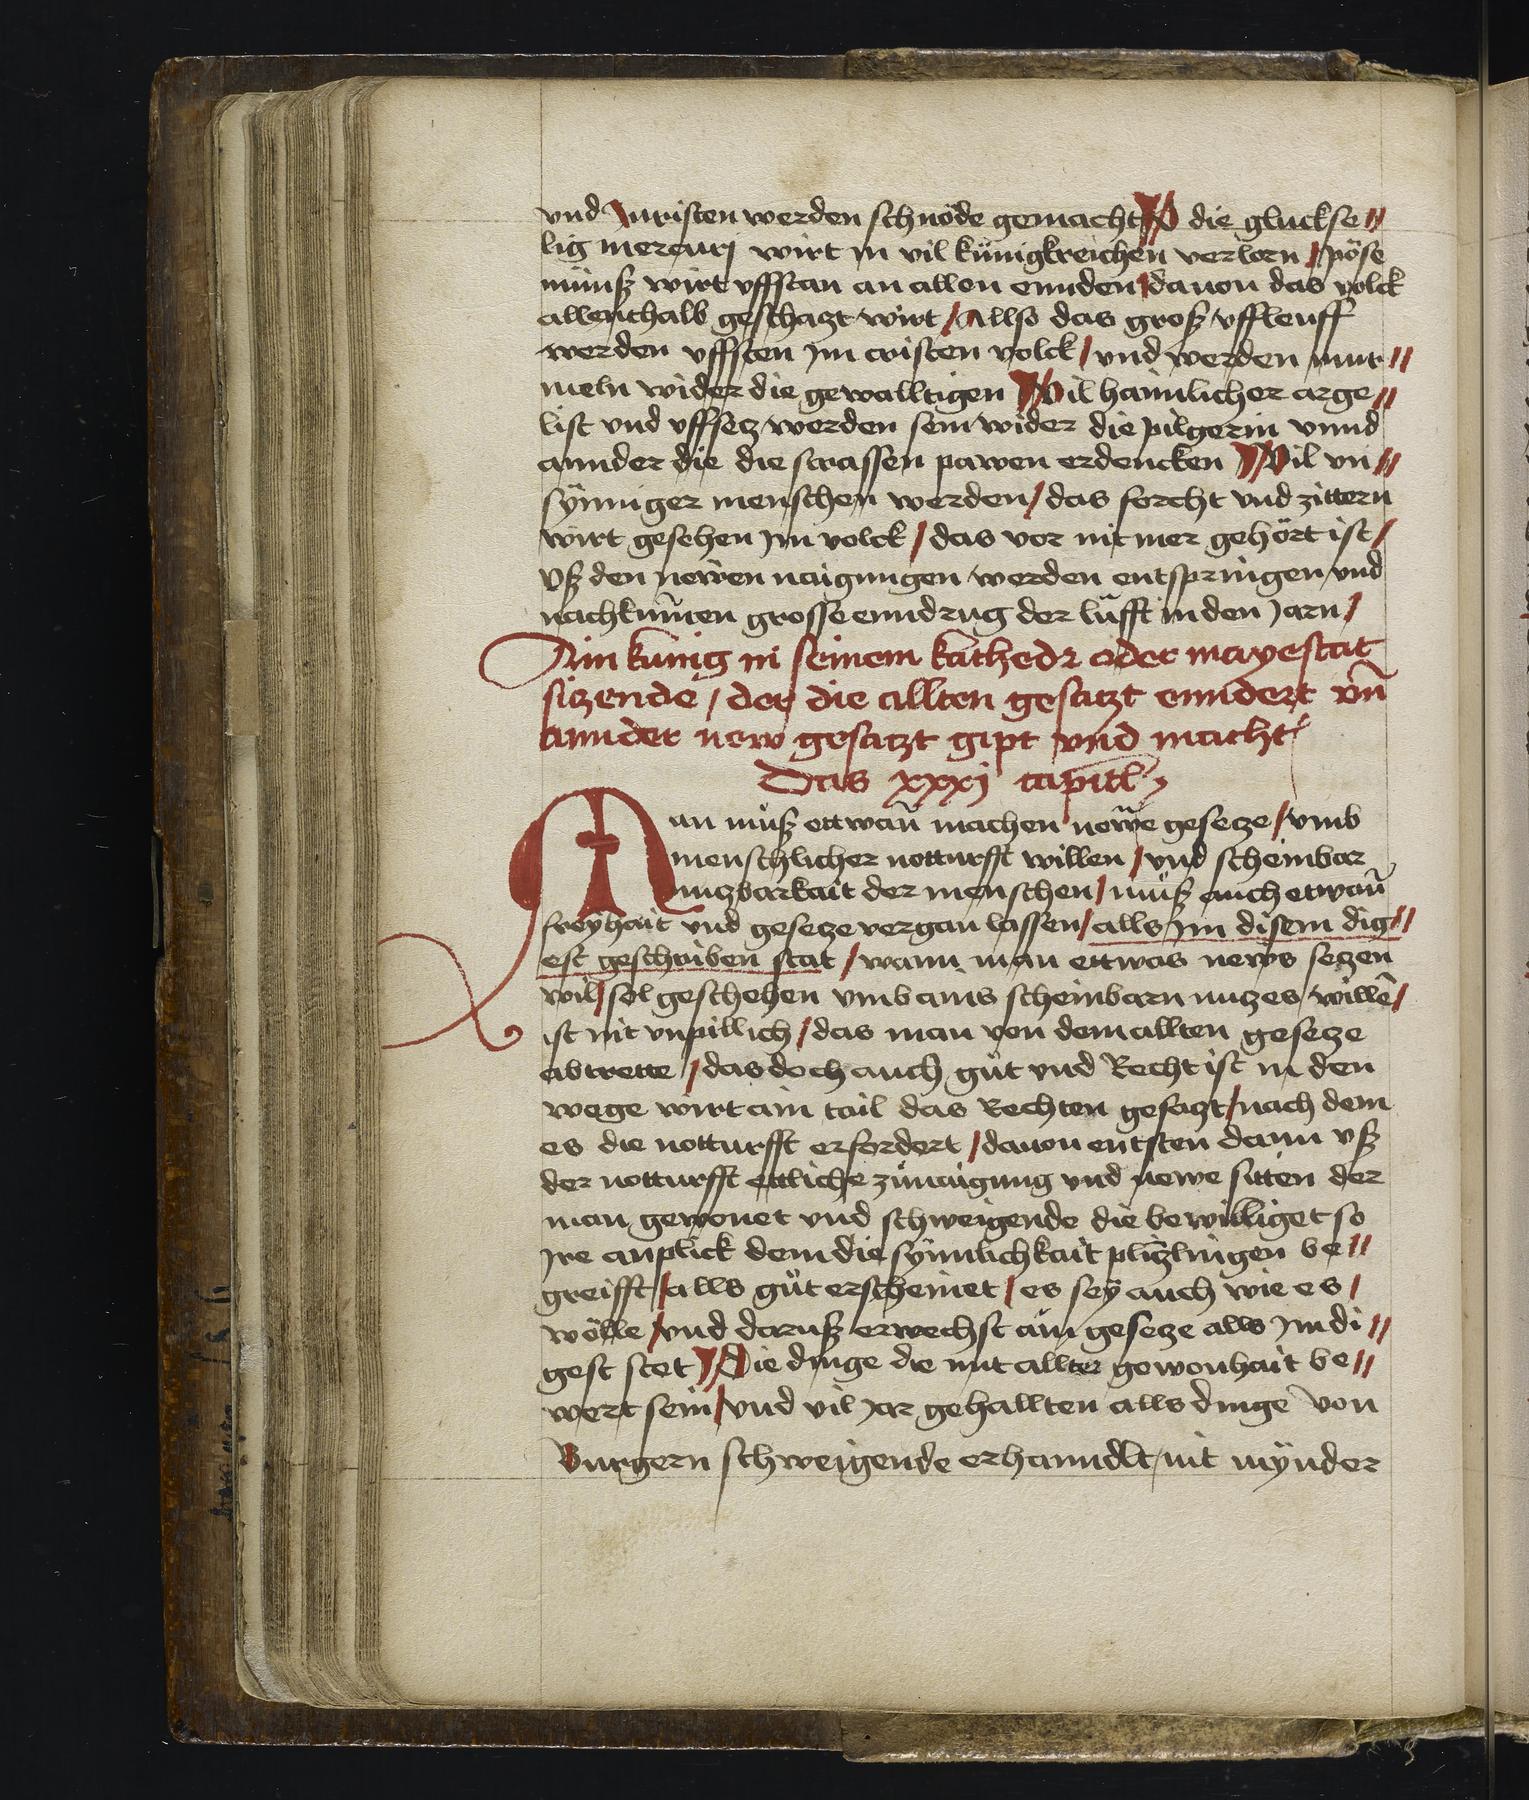 vnd Juristen werden schnöde gemacht // O die gluckse //
lig mercurj wirt in vil künigkreichen verlorn / pöse
münsz wirt vffstan an allen ennden / dauon das volck
allenthalb geschatzt wirt / Allso das grosz vffleuff
werden vffsten jm cristen volck / vnd werden mur //
meln wider die gewalltigen // Vil haimlicher arge //
list vnd vffsetz werden sein wider die pilgerin vnnd
annder die die strassen pawen erdencken // Vil vn //
sÿnniger menschen werden / das forcht vnd zittern
wirt gesehen jm volck / das vor nit mer gehört ist /
Vsz den newen naigungen werden entspringen vnd
nachkum̄en grosse enndrug der lüfft in den Jarn /
Ain künig in seinem kathedr oder mayestat
sitzende / der die allten gesatzt enndert vn̄
annder new gesatzt gipt vnd macht
Das xxxj capitl
Man müsz ettwan̄ machen newe gesetze / vmb
menschlicher notturfft willen / vnd scheinbar
nutzbarkait der menschen / müsz auch etwan̄
freÿhait vnd gesetze vergan lassen / alls jm disem dig //
est geschriben stat / wann man ettwas news setzen
wil / sol geschehen vmb ains scheinbarn nutzes willē /
ist nit vnpillich / das man von dem allten gesetze
abtrette / das doch auch gut vnd Recht ist in den
wege wirt ain tail das Rechten gesatzt / nach dem
es die notturfft erfordert / dauon entsten dann vsz
der notturfft ettliche zünaigung vnd newe sitten der
man gewonet vnd schweigende die bewilliget so
jre anplick dem die sÿnnlichkait plützlingen be //
greifft / alls gůt erscheinet / es seÿ auch wie es /
wölle / vnd darusz erwechst ain gesetze alls jm di //
gest stet // Die dinge die mit allter gewonhait be //
wert sein / vnd vil jar gehallten alls dinge von
Burgern schweigende erhanndlt / nit mÿnder